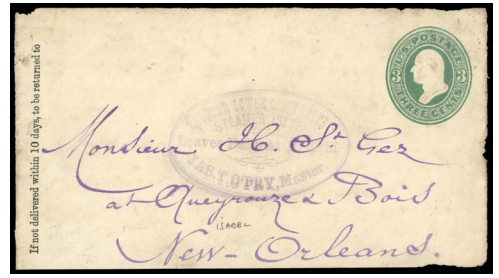 If not delivered within 10 days, to be returned to
U.S. POSTAGE
3 3
THREE CENTS
LOWER
Leaves
JAS. T. O'PRY, Master.
Monsieur H. St Gez
at Queyrouze & Bois
ISABEL
New-Orleans.